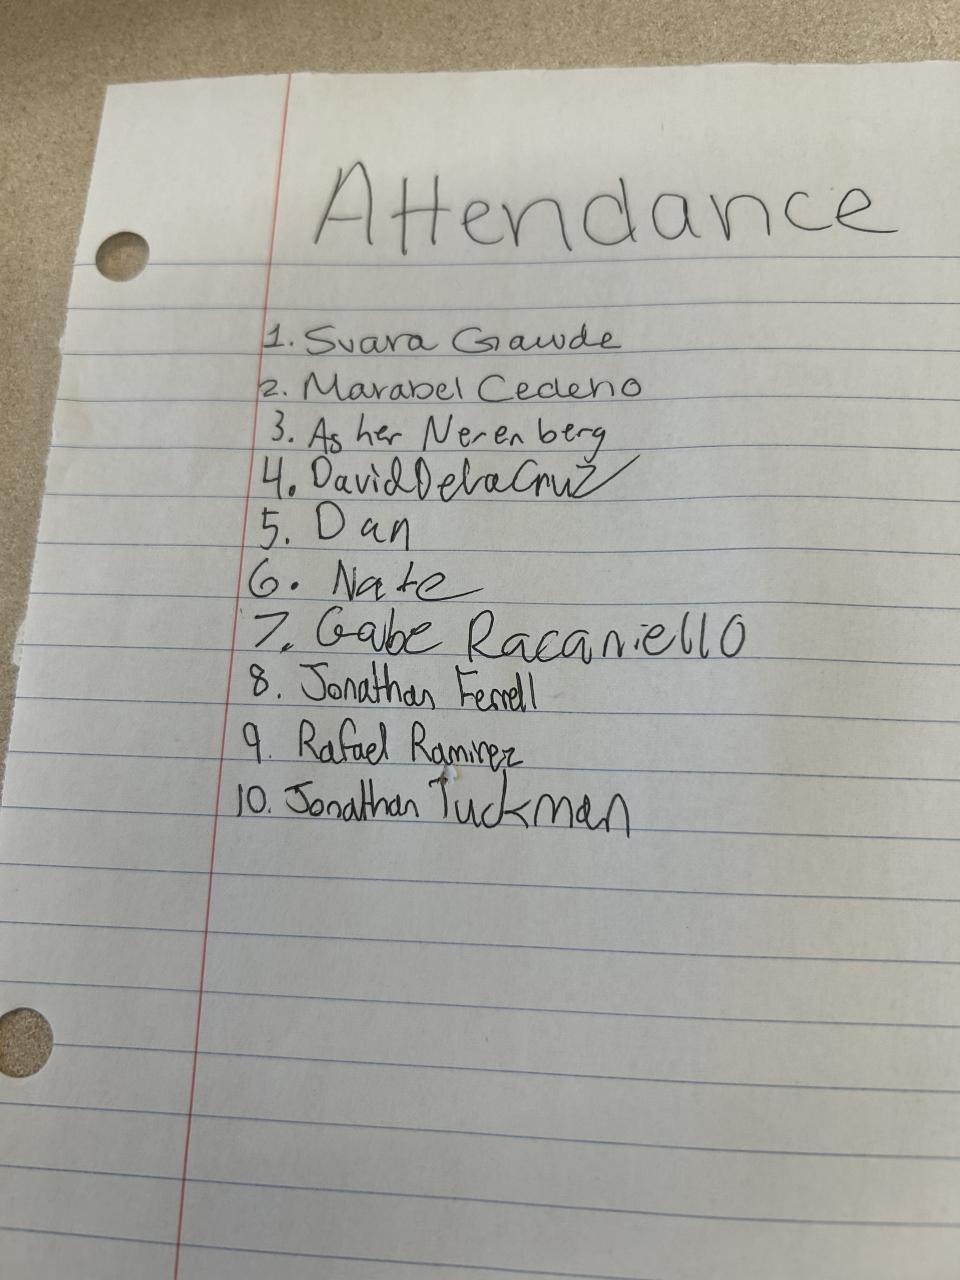 Attendance
1. Svara Gawde
2. Marabel Cedeno
3. Asher Nerenberg
4. David Dela Cruz
5. Dan
6. Nate
7. Gabe Racaniello
8. Jonathan Ferrell
9. Rafael Ramirez
10. Jonathan Tuckman